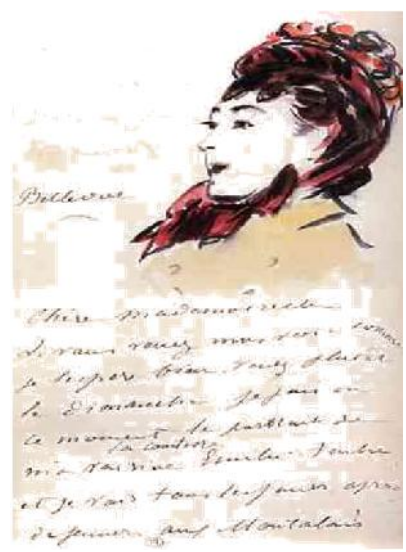 Bellevue
Chère mademoiselle
Si vous venez me voir comme
je l'espère bien, venez plutôt
le Dimanche je fais en
ce moment le portrait de
la cantatrice
ma voisine Emilie Ambre
et je vais tous les jours après
déjeuner aux Montalais